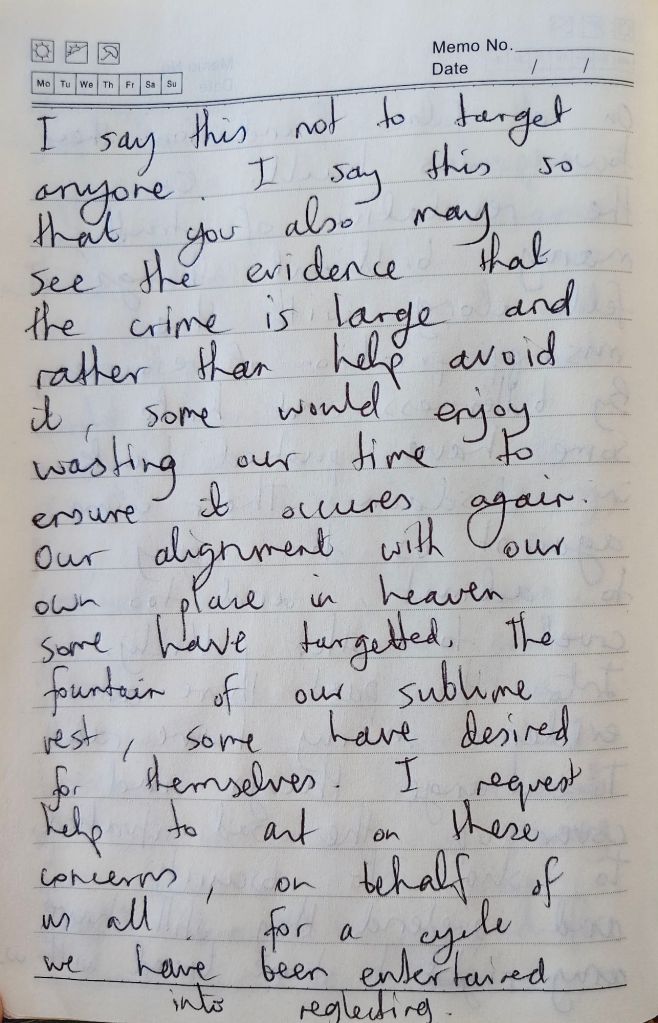 Memo No.
Date / /
Mo Tu We Th Fr Sa Su
I say this not to target
anyone. I say this so
that you also may
see the evidence that
the crime is large and
rather than help avoid
it, some would enjoy
wasting our time to
ensure it occures again.
Our alignment with our
own place in heaven
some have targetted. The
fountain of our sublime
rest, some have desired
for themselves. I request
help to act on these
concerns, on behalf of
us all. for a cycle
we have been entertained
into neglecting.